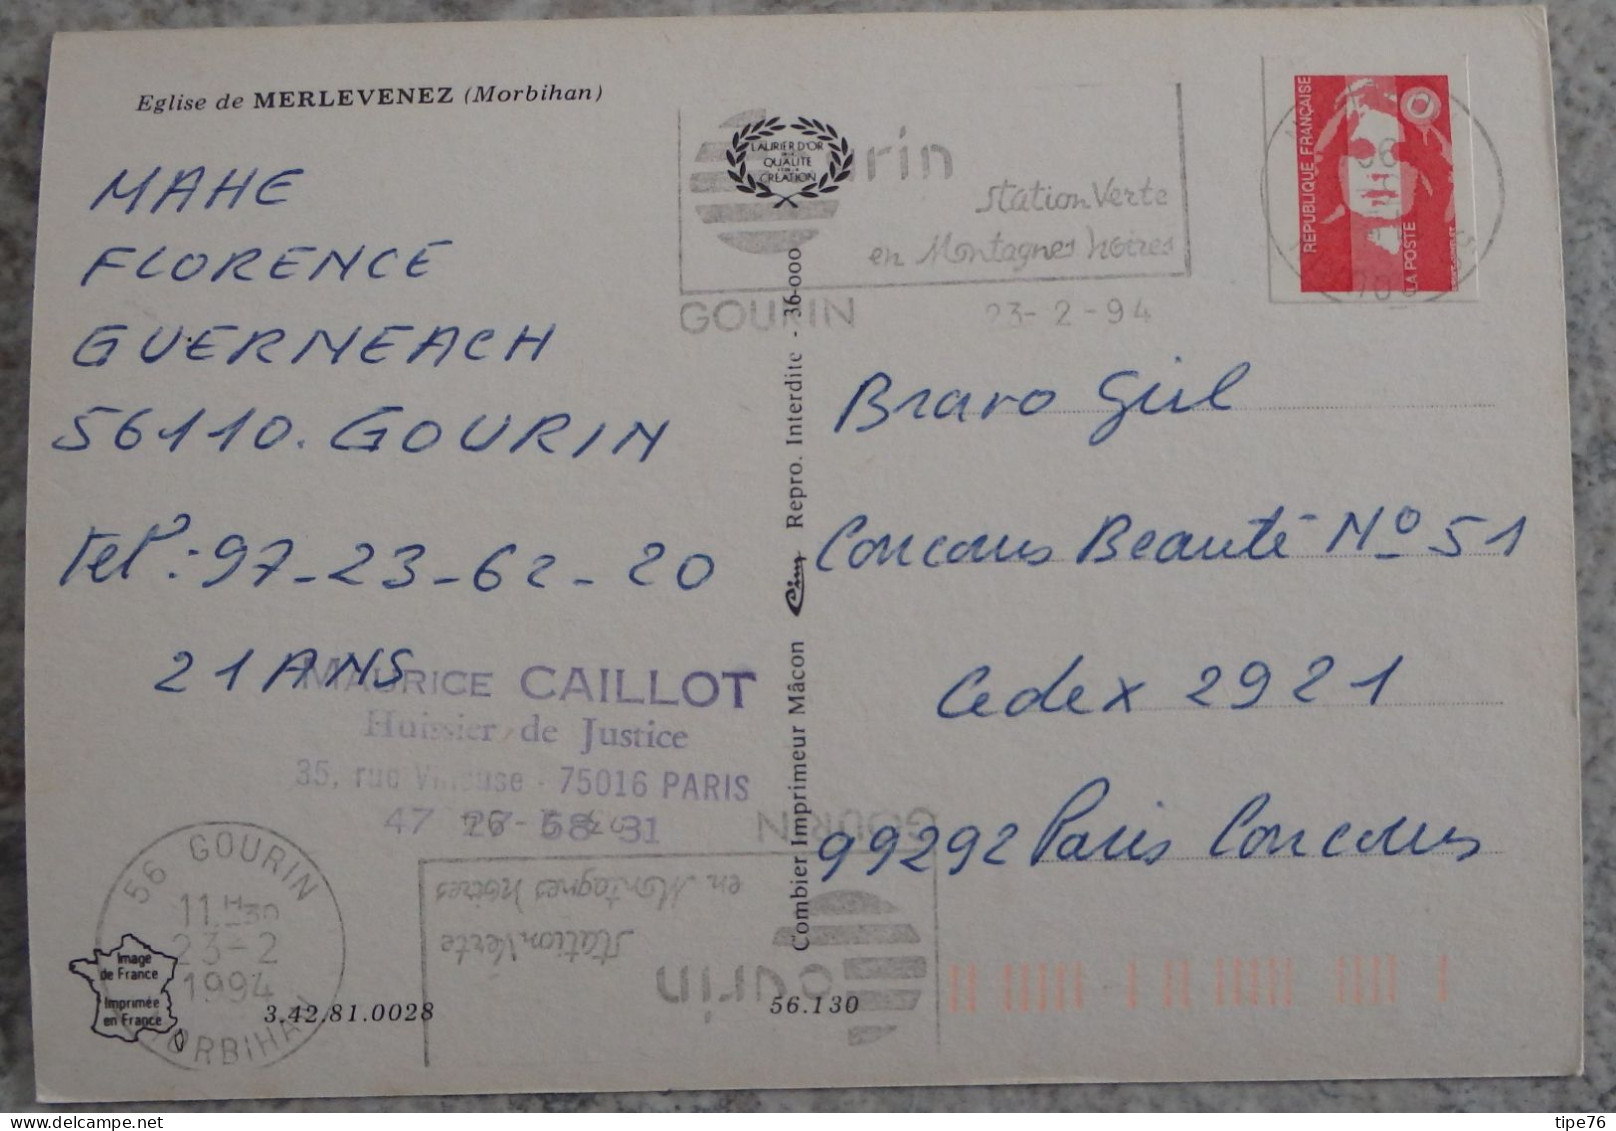 Eglise de MERLEVENEZ (Morbihan)
MAHE
FLORENCE
GUERNEACH
56110. GOURIN
Tel: 97-23-62-20
21 ANS
MAURICE CAILLOT
Huissier de Justice
35, rue - 75016 PARIS
47 31
56 GOURIN
11H30
23-2
1994
MORBIHAN
Image
de France
Imprimée
en France
3.42.81.0028
56.130
Combier Imprimeur Mâcon Cim Repro. Interdite - 36-000
LAURIER D'OR
QUALITE
CREATION
ourin
Station Verte
en Montagnes Noires
GOURIN 23-2-94
REPUBLIQUE FRANÇAISE
LA POSTE
Bravo Girl
Concours Beauté No 51
Cedex 2921
99292 Paris Concours
GOURIN
en Montagnes Noires
Station Verte
ourin
delcampe.net
tipe76